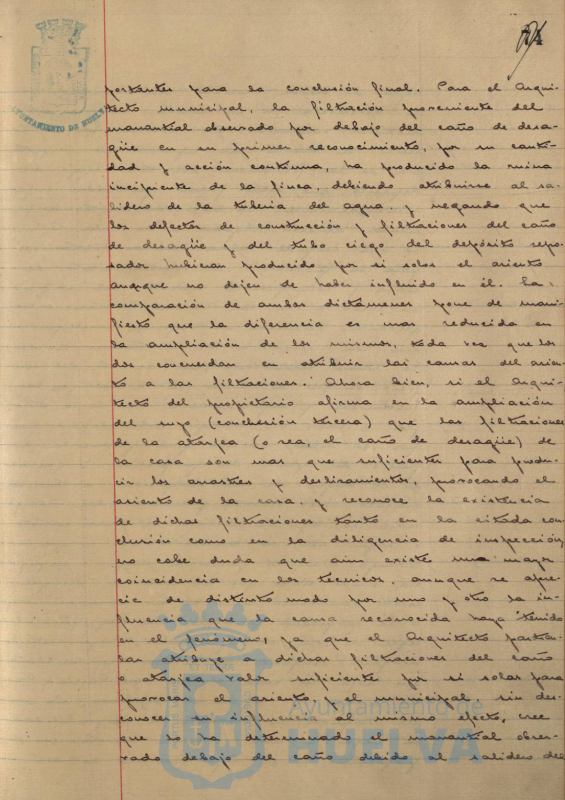 74
AYUNTAMIENTO DE HUELVA
portantes para la conclusión final. Para el Arqui-
tecto municipal, la filtración proveniente del
manantial observado por debajo del caño de desa-
güe en su primer reconocimiento, por su canti-
dad y acción continua, ha producido la ruina
incipiente de la finca, debiendo atribuirse al sa-
lidero de la tuberia del agua, y negando que
los defectos de construcción y filtraciones del caño
de desagüe y del tubo ciego del depósito repo-
sador hubieran producido por si solos el asiento
aunque no dejen de haber influido en él. La
comparación de ambos dictámenes pone de mani-
fiesto que la diferencia es mas reducida en
la ampliación de los mismos, toda vez que los
dos concuerdan en atribuir las causas del asien-
to a las filtraciones. Ahora bien, si el Arqui-
tecto del propietario afirma en la ampliación
del suyo (conclusión tercera) que las filtraciones
de la atarjea (o sea, el caño de desagüe) de
la casa son mas que suficientes para produ-
cir los arrastres y deslizamientos, provocando el
asiento de la casa, y reconoce la existencia
de dichas filtraciones tanto en la citada con-
clusión como en la diligencia de inspección,
no cabe duda que aun existe una mayor
coincidencia en los tecnicos, aunque se apre-
cie de distinto modo por uno y otro la in-
fluencia que la causa reconocida haya tenido
en el fenómeno, ya que el Arquitecto particu-
lar atribuye a dichas filtraciones del caño
o atarjea valor suficiente por si solas para
provocar el asiento, y el municipal, sin des-
conocer su influencia al mismo efecto, cree
que lo ha determinado el manantial obser-
vado debajo del caño debido al salidero del
Ayuntamiento de
HUELVA